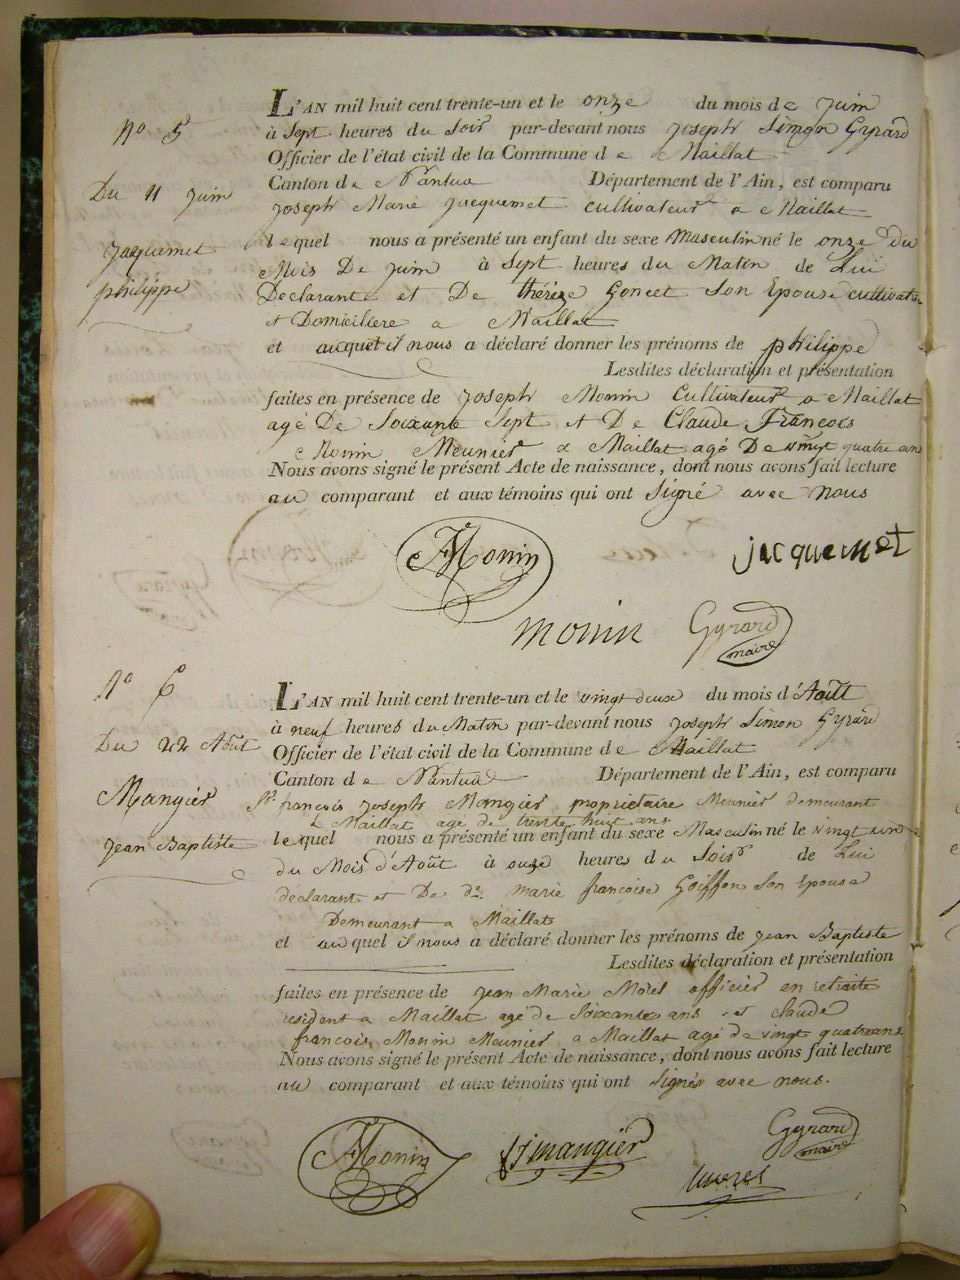 N° 5
Du 11 Juin
Jacquemet
philippe
L'AN mil huit cent trente-un et le onze du mois de Juin
à Sept heures du Soir par-devant nous Joseph Simon Gyrard
Officier de l'état civil de la Commune de Maillat
Canton de Nantua Département de l'Ain, est comparu
Joseph Marie Jacquemet cultivateur a Maillat
lequel nous a présenté un enfant du sexe Masculin né le onze du
Mois De Juin à Sept heures du Matin de Lui
Declarant et De thérèze Goncet Son Epouse cultivatr
et Domiciliere a Maillat
et auquel il nous a déclaré donner les prénoms de philippe
Lesdites déclaration et présentation
faites en présence de Joseph Monin Cultivateur a Maillat
agé De Soixante Sept et De Claude François
Monin, Meunier a Maillat agé De vingt quatre ans
Nous avons signé le présent Acte de naissance, dont nous avons fait lecture
au comparant et aux témoins qui ont Signé avec nous
Monin
jacquemet
monin
Gyrard
maire
N° 6
Du 22 Août
Mangier
Jean Baptiste
L'AN mil huit cent trente-un et le vingt deux du mois d'Août
à neuf heures du Matin par-devant nous Joseph Simon Gyrard
Officier de l'état civil de la Commune de Maillat
Canton de Nantua Département de l'Ain, est comparu
Sr françois Joseph Mangier, propriétaire Meunier demeurant
a Maillat agé de trente huit ans
lequel nous a présenté un enfant du sexe Masculin né le vingt un
du Mois d'Août à onze heures du Soir de Lui
déclarant et De de marie françoise Goiffon Son Epouse
Demeurant a Maillat
et auquel il nous a déclaré donner les prénoms de Jean Baptiste
Lesdites déclaration et présentation
faites en présence de Jean Marie Morel officier en retraite
résident a Maillat agé de Soixante ans et claude
françois Monin Meunier a Maillat agé de vingt quatre ans
Nous avons signé le présent Acte de naissance, dont nous avons fait lecture
au comparant et aux témoins qui ont signés avec nous.
Monin
fj mangier
Gyrard
maire